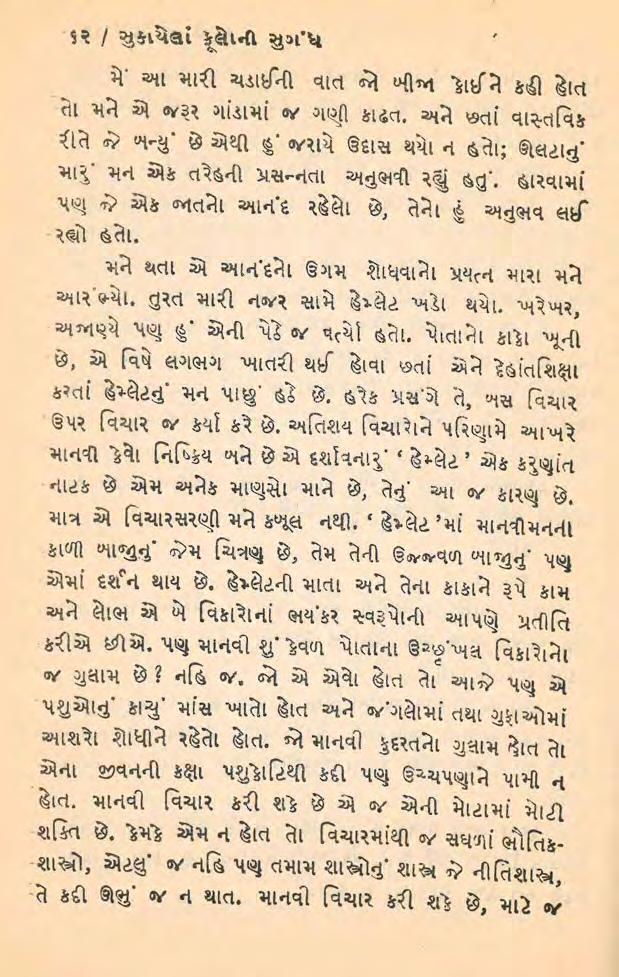 ૬૨ / સુકાયેલાં ફૂલોની સુગંધ
મેં આ મારી ચડાઈની વાત જો બીજા કોઈને કહી હોત
તો મને એ જરૂર ગાંડામાં જ ગણી કાઢત. અને છતાં વાસ્તવિક
રીતે જે બન્યું છે એથી હું જરાયે ઉદાસ થયો ન હતો; ઊલટાનું
મારું મન એક તરેહની પ્રસન્નતા અનુભવી રહ્યું હતું. હારવામાં
પણ જે એક જાતનો આનંદ રહેલો છે, તેનો હું અનુભવ લઈ
રહ્યો હતો.
મને થતા એ આનંદનો ઉગમ શોધવાનો પ્રયત્ન મારા મને
આરંભ્યો. તુરત મારી નજર સામે હેમ્લેટ ખડો થયો. ખરેખર,
અજાણ્યે પણ હું એની પેઠે જ વર્ત્યો હતો. પોતાનો કાકો ખૂની
છે, એ વિષે લગભગ ખાતરી થઈ હોવા છતાં એને દેહાંતશિક્ષા
કરતાં હેમ્લેટનું મન પાછું હઠે છે. હરેક પ્રસંગે તે, બસ વિચાર
ઉપર વિચાર જ કર્યા કરે છે. અતિશય વિચારોને પરિણામે આખરે
માનવી કેવો નિષ્ક્રિય બને છે એ દર્શાવનારું ‘હેમ્લેટ’ એક કરુણાંત
નાટક છે એમ અનેક માણસો માને છે, તેનું આ જ કારણ છે.
માત્ર એ વિચારસરણી મને કબૂલ નથી. ‘હેમ્લેટ’માં માનવીમનના
કાળી બાજુનું જેમ ચિત્રણ છે, તેમ તેની ઉજ્જ્વળ બાજુનું પણ
એમાં દર્શન થાય છે. હેમ્લેટની માતા અને તેના કાકાને રૂપે કામ
અને લોભ એ બે વિકારોનાં ભયંકર સ્વરૂપોની આપણે પ્રતીતિ
કરીએ છીએ. પણ માનવી શું કેવળ પોતાના ઉચ્છૃંખલ વિકારોનો
જ ગુલામ છે? નહિ જ. જો એ એવો હોત તો આજે પણ એ
પશુઓનું કાચું માંસ ખાતો હોત અને જંગલોમાં તથા ગુફાઓમાં
આશરો શોધીને રહેતો હોત. જો માનવી કુદરતનો ગુલામ હોત તો
એના જીવનની કક્ષા પશુકોટિથી કદી પણ ઉચ્ચપણાને પામી ન
હોત. માનવી વિચાર કરી શકે છે એ જ એની મોટામાં મોટી
શક્તિ છે. કેમકે એમ ન હોત તો વિચારમાંથી જ સઘળાં ભૌતિક-
શાસ્ત્રો, એટલું જ નહિ પણ તમામ શાસ્ત્રોનું શાસ્ત્ર જે નીતિશાસ્ત્ર,
તે કદી ઊભું જ ન થાત. માનવી વિચાર કરી શકે છે, માટે જ